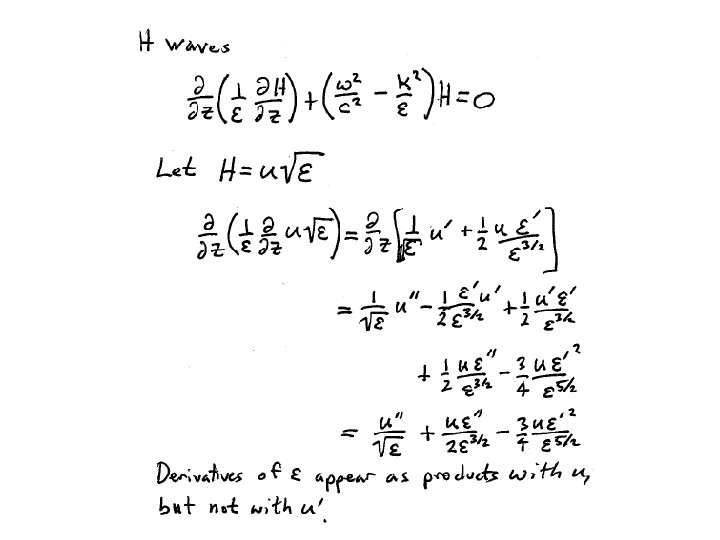 H waves
∂/∂z(1/ε ∂H/∂z)+(ω²/c² - k²/ε)H=0
Let H=u√ε
∂/∂z(1/ε ∂/∂z u√ε)=∂/∂z[1/√ε u' + 1/2 u ε'/ε^3/2]
= 1/√ε u" - 1/2 ε'u'/ε^3/2 + 1/2 u'ε'/ε^3/2
+ 1/2 uε"/ε^3/2 - 3/4 uε'²/ε^5/2
= u"/√ε + uε"/2ε^3/2 - 3/4 uε'²/ε^5/2
Derivatives of ε appear as products with u,
but not with u'.